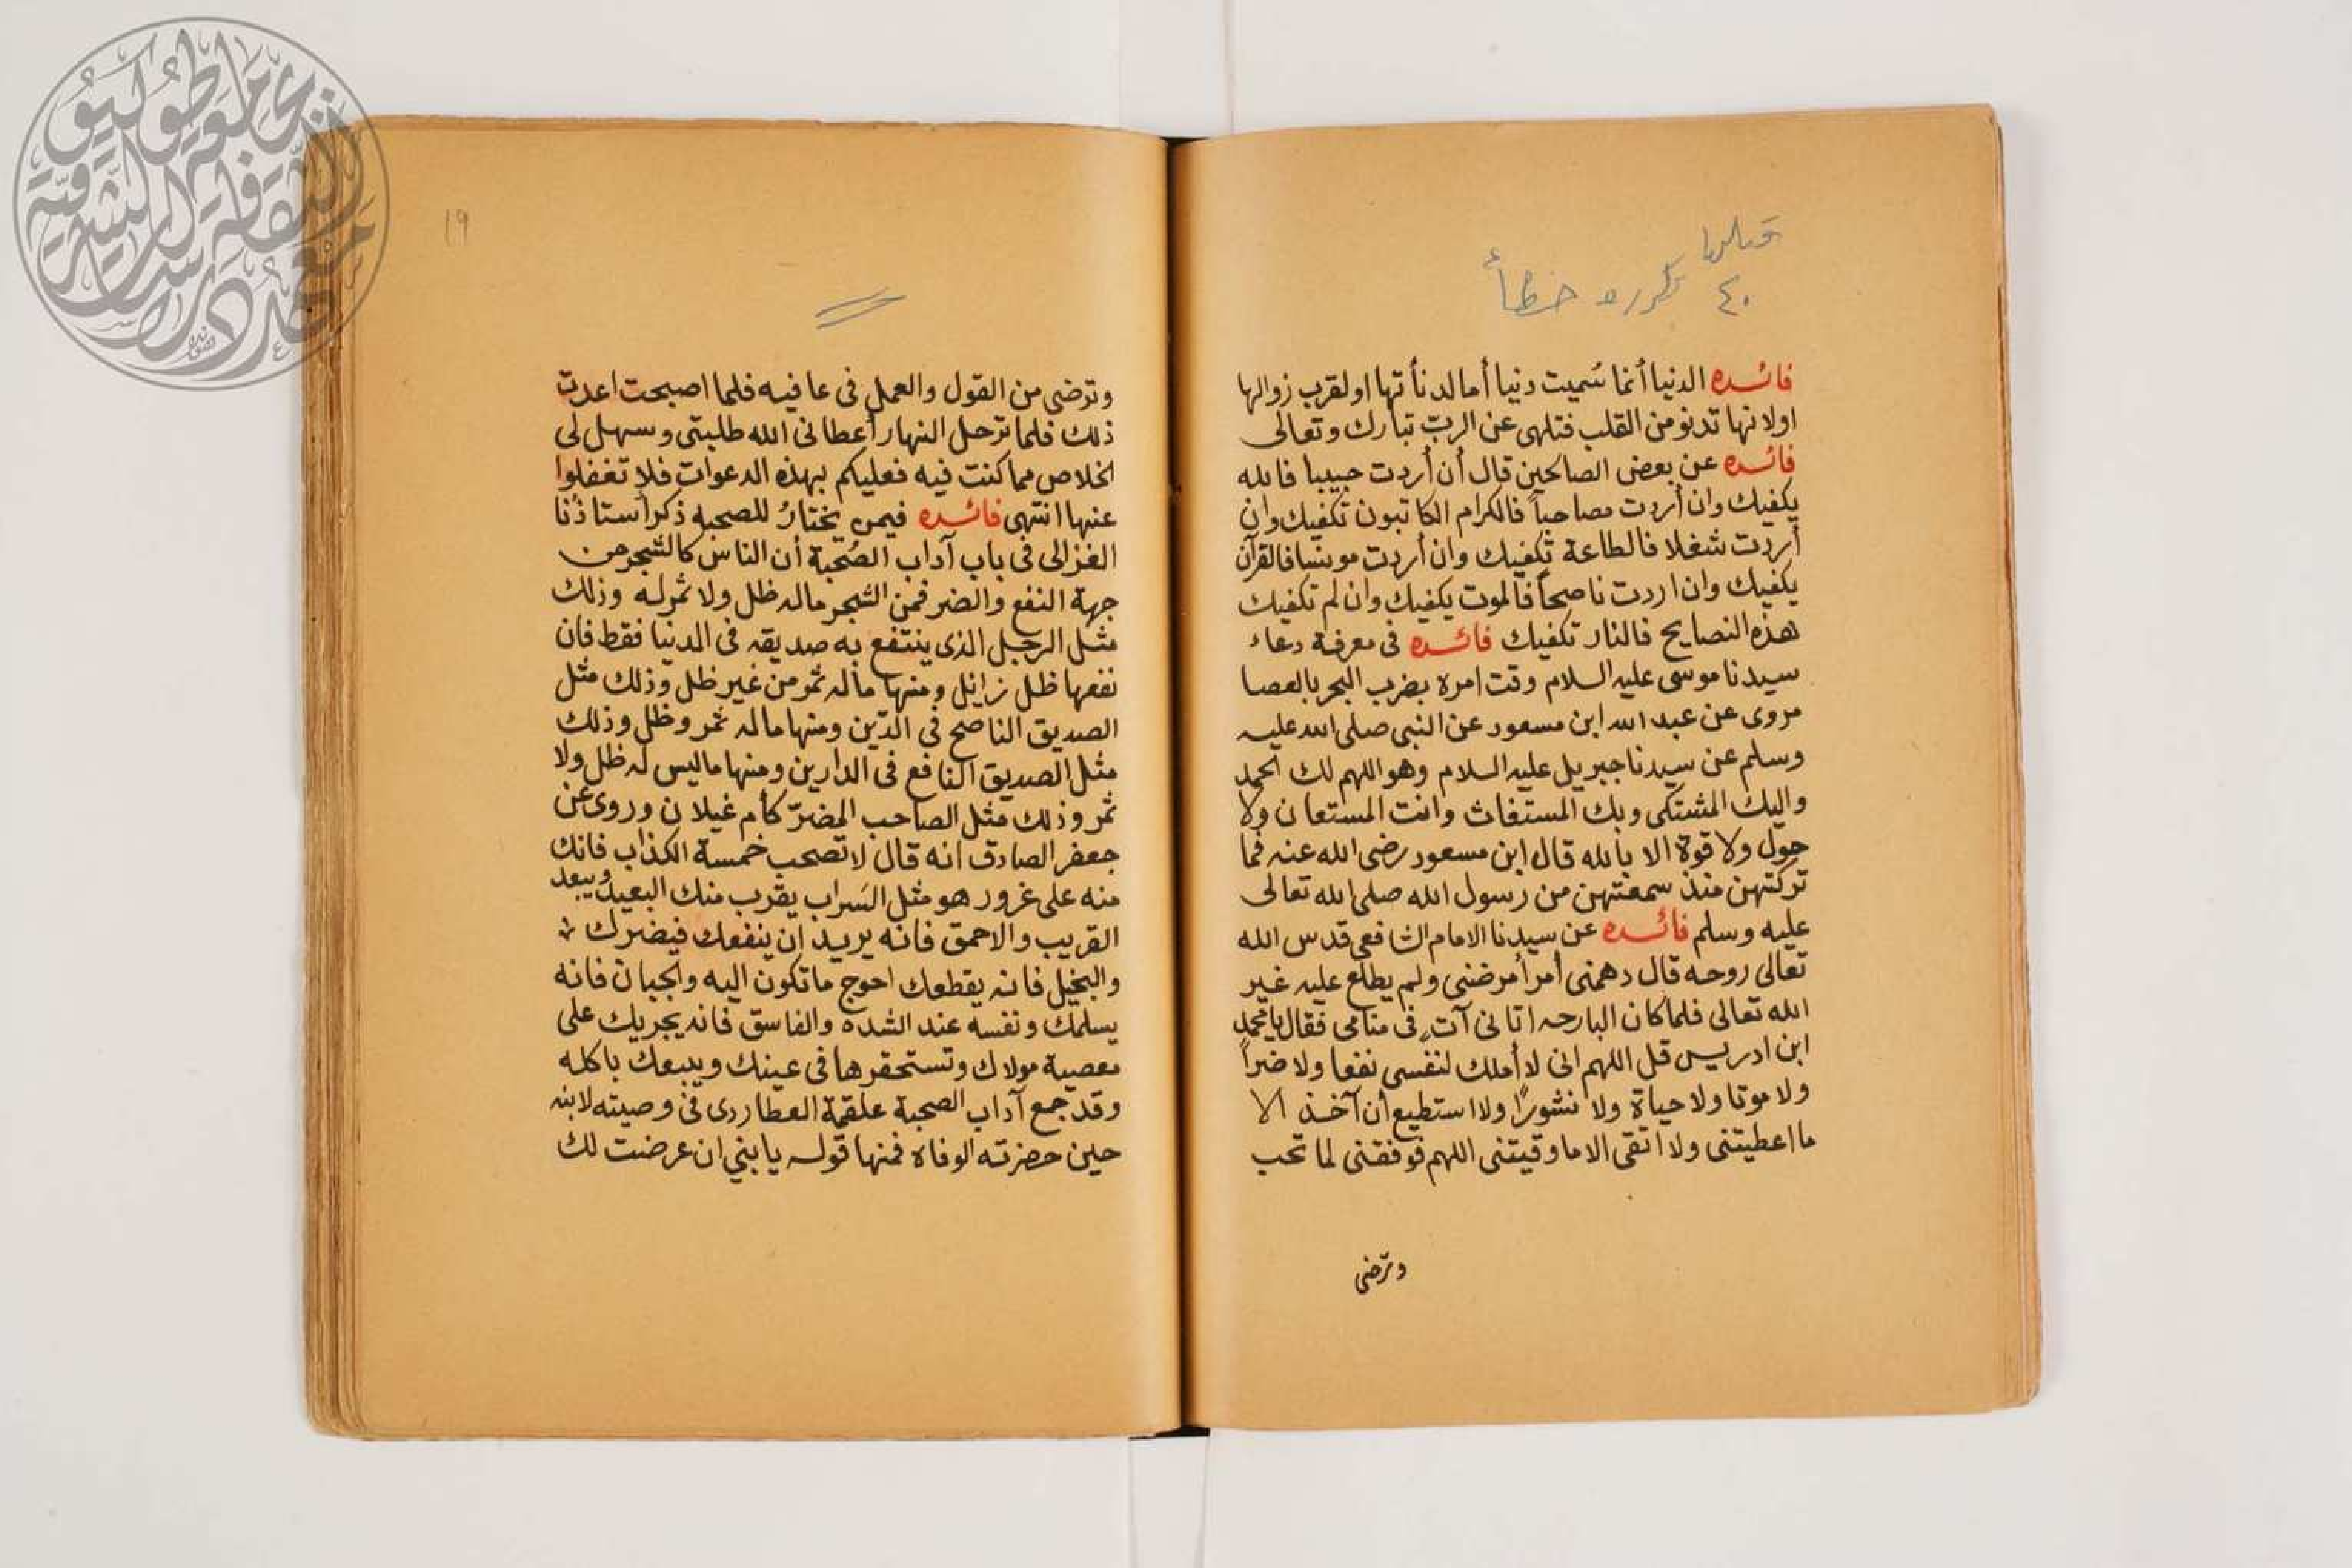 قبلها
٤٠ مكرره خطأ
فائده الدنيا أنما سُميت دنيا أما لدنأتها او لقرب زوالها
اولانها تدنو من القلب فتلهى عن الربّ تبارك وتعالى
فائده عن بعض الصالحين قال أن أردت حبيبا فالله
يكفيك وان أردت مصاحباً فالكرام الكاتبون تكفيك وان
أردت شغلا فالطاعة تكفيك وان أردت مونسا فالقرآن
يكفيك وان اردت ناصحاً فالموت يكفيك وان لم تكفيك
هذه النصايح فالنار تكفيك فائده فى معرفة دعاء
سيدنا موسى عليه السلام وقت امره بضرب البحر بالعصا
مروى عن عبد الله ابن مسعود عن النبى صلى الله عليه
وسلم عن سيدنا جبريل عليه السلام وهو اللهم لك الحمد
واليك المشتكى وبك المستغاث وانت المستعان ولا
حول ولا قوة الا بالله قال ابن مسعود رضى الله عنه فما
تركتهن منذ سمعتهن من رسول الله صلى الله تعالى
عليه وسلم فائده عن سيدنا الامام الشافعى قدس الله
تعالى روحه قال دهمنى أمر أمرضنى ولم يطلع عليه غير
الله تعالى فلما كان البارحه اتانى آتٍ فى منامى فقال يا محمد
ابن ادريس قل اللهم انى لا أملك لنفسى نفعا ولا ضراً
ولا موتا ولا حياة ولا نشوراً ولا استطيع أن آخذ الا
ما اعطيتنى ولا اتقى الا ما وقيتنى اللهم فوفقنى لما تحب
وترضى
١٩
وترضى من القول والعمل فى عافيه فلما اصبحت اعدت
ذلك فلما ترحل النهار أعطانى الله طلبتى وسهل لى
الخلاص مما كنت فيه فعليكم بهذه الدعوات فلا تغفلوا
عنها انتهى فائده فيمن يختارُ للصحبه ذكر أستاذُنا
الغزالى فى باب آداب الصُحبة أن الناس كالشجر من
جهة النفع والضر فمن الشجر ماله ظل ولا ثمر له وذلك
مثل الرجل الذى ينتفع به صديقه فى الدنيا فقط فان
نفعها ظل زائل ومنها ماله ثمر من غير ظل وذلك مثل
الصديق الناصح فى الدّين ومنها ماله ثمر وظل وذلك
مثل الصديق النافع فى الدارين ومنها ماليس له ظل ولا
ثمر وذلك مثل الصاحب المضرّ كأم غيلان وروى عن
جعفر الصادق انه قال لا تصحب خمسة الكذاب فانك
منه على غرور هو مثل السَراب يقرب منك البعيد ويبعد
القريب والاحمق فانه يريد ان ينفعك فيضرك
والبخيل فانه يقطعك احوج ما تكون اليه والجبان فانه
يسلمك ونفسه عند الشده والفاسق فانه يجريك على
معصية مولاك وتستحقرها فى عينك ويبيعك باكله
وقد جمع آداب الصحبة علقمة العطاردى فى وصيته لابنه
حين حضرته الوفاه فمنها قوله يا بني ان عرضت لك